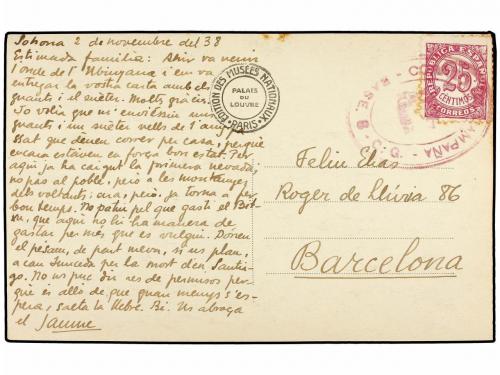 Solsona 2 de novembre del 38
Estimada família: Ahir va venir
l'onde de l' i em va
entregar la vostra carta amb els
guants i el suèter. Moltes gràcies.
Jo volia que m'enviéssiu uns
guants i un suèter vells de l'any
que deuen córrer per casa, perquè
encara estaven en força bon estat. Per
aquí ja ha caigut la primera nevada,
no pas al poble, però a les muntanyes
dels voltants; ara, però, ja torna a fer
bon temps. No patiu pel que gasti el
que aquí no hi ha manera de
gastar per més que es vulgui. Doneu
el pèsam, de part meva, si us plau,
a can per la mort d'en
No us puc dir res de permisos per-
què és allò de que quan menys s'es-
pera, salta la llebre. Us abraça
el Jaume
ÉDITION DES MUSÉES NATIONAUX
PALAIS
DU
LOUVRE
PARIS
REPÚBLICA ESPAÑOLA
25
CENTIMOS
CORREOS
CAMPAÑA
BASE 8
C.G.
Feliu Elias
Roger de Llúria 86
Barcelona